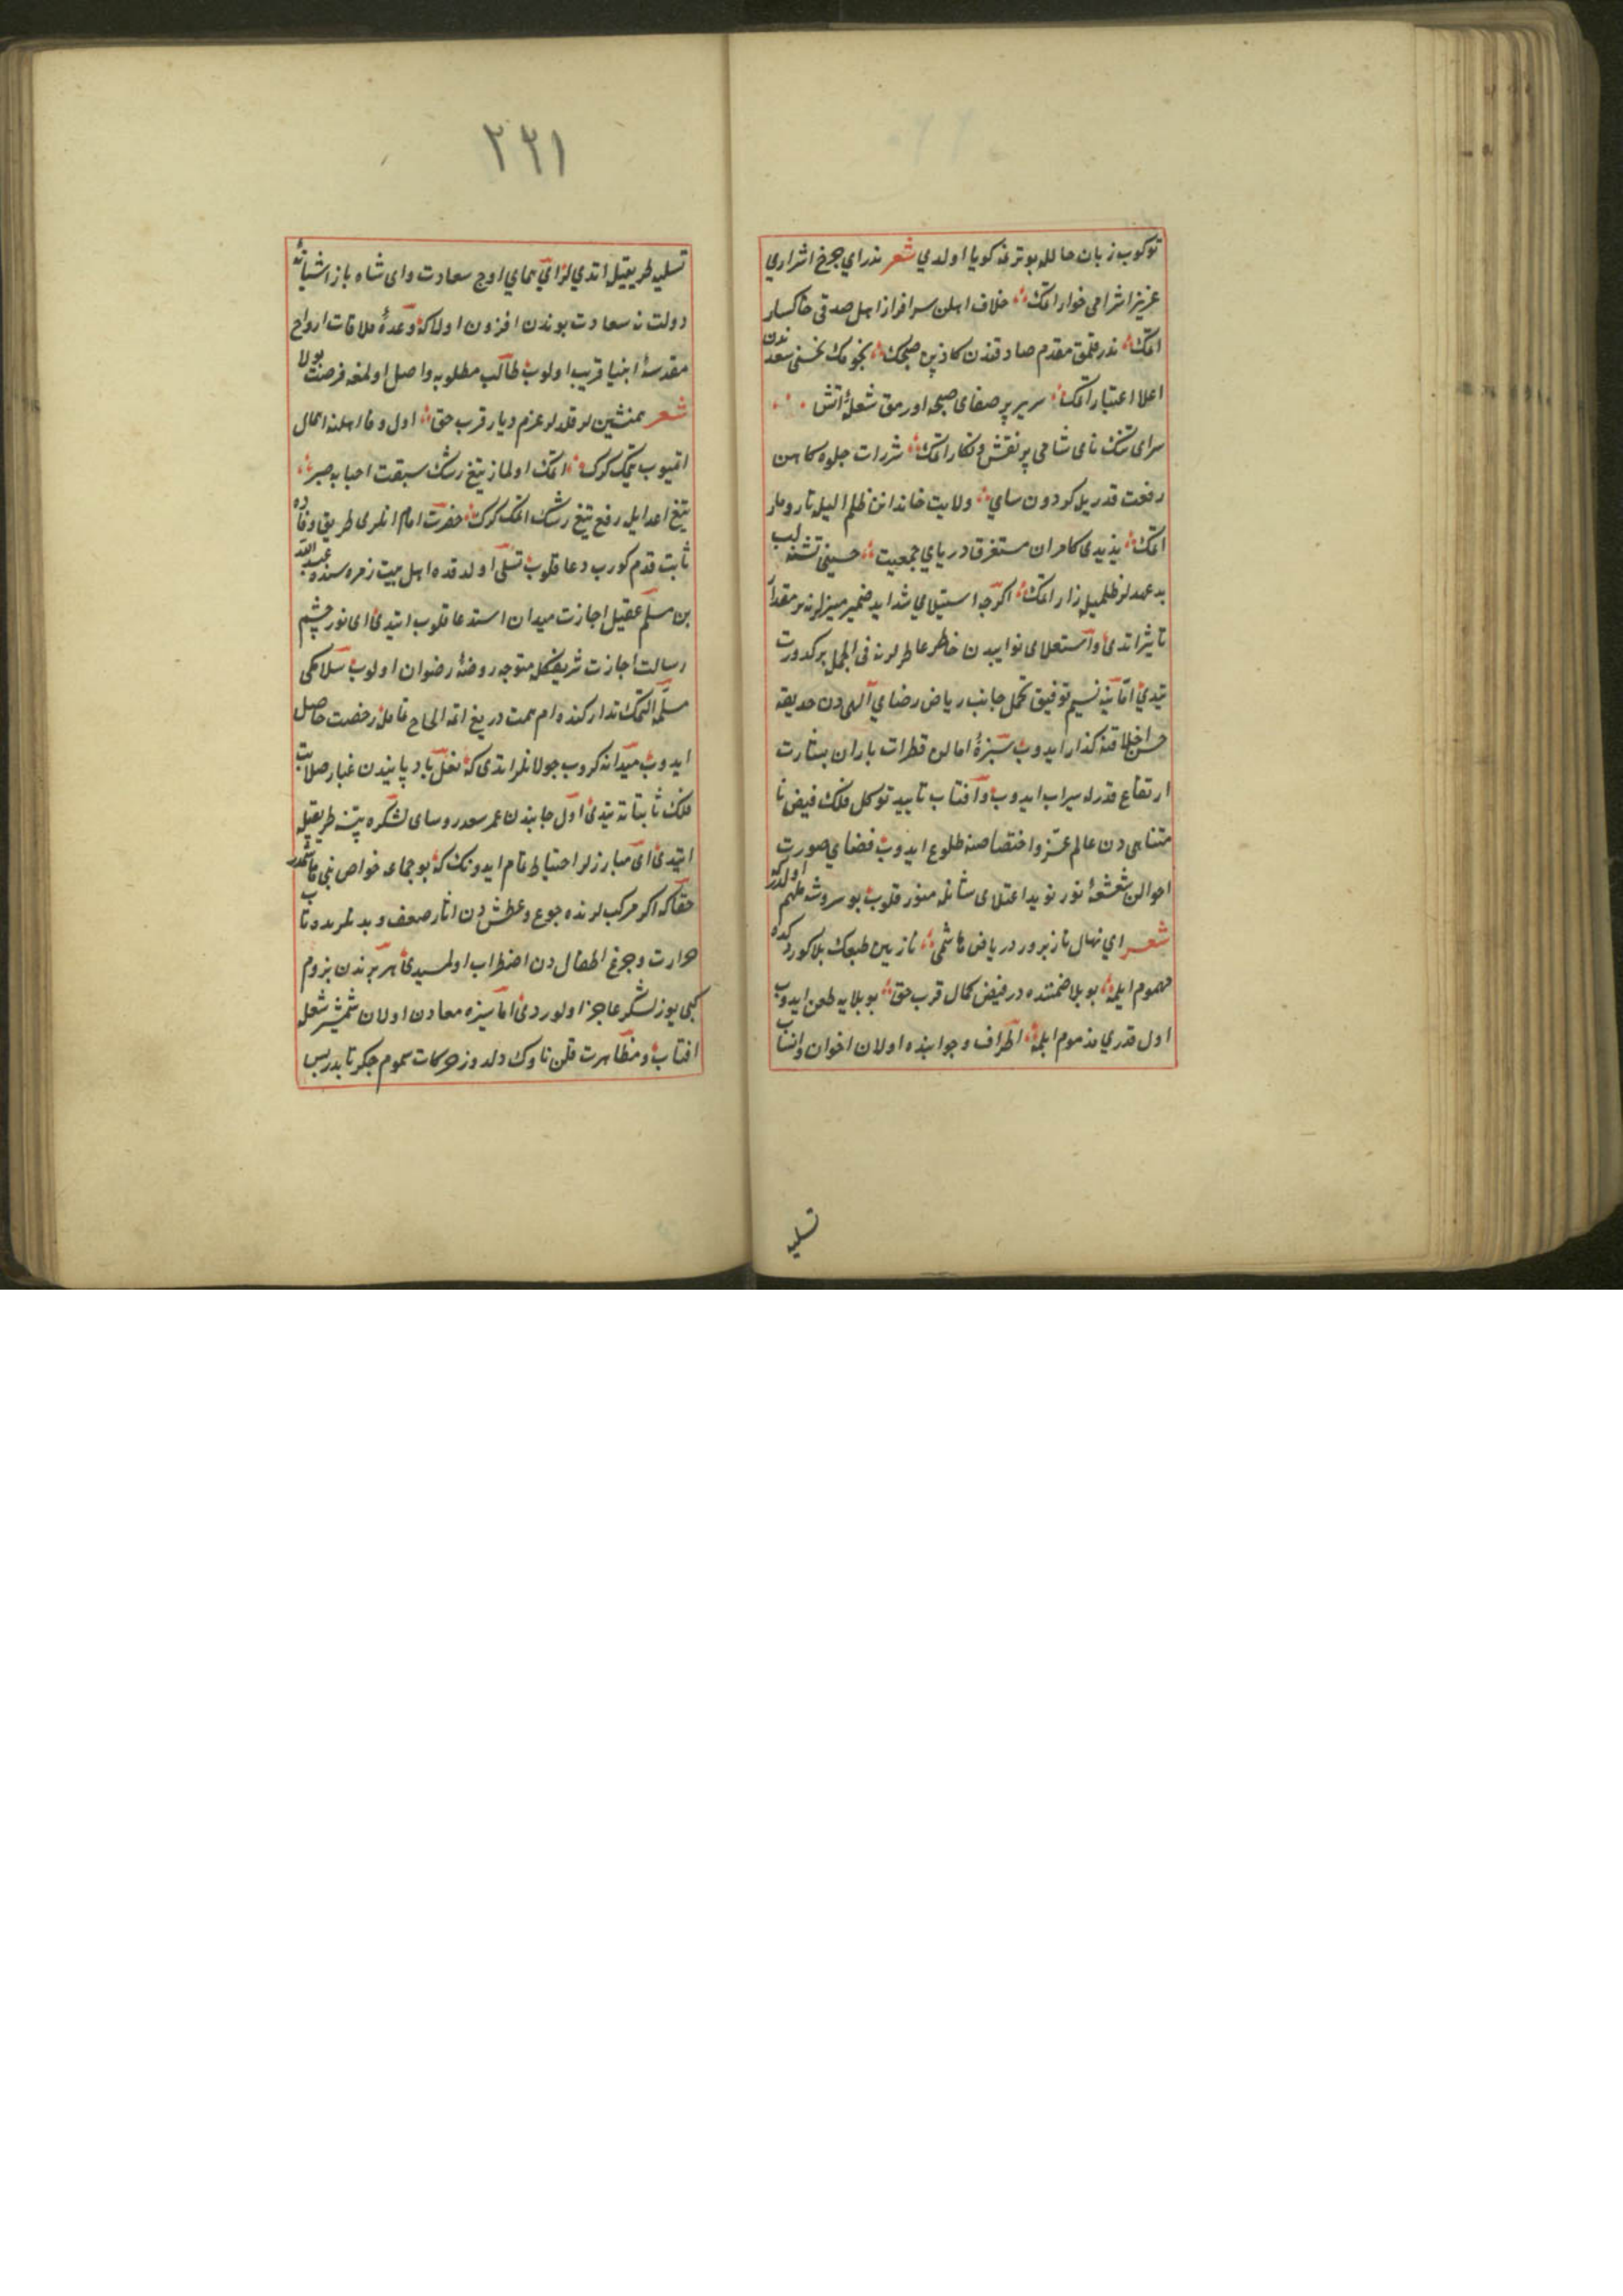 توكوب زبان حالله بو ترغه كويا اولدي شعر ندر اي چرخ اشراري
عزيز اشرافى خوار اتمك خلاف اهلن سرافراز اهل صدقى خاكسار
اتمك ندر قلمق مقدم صادقندن كاذبن صبحك نجومك نحسنى سعدندن
اعلا اعتبار اتمك سرير پر صفاى صبحه اورمق شعلهٔ اتش
سراى تنك ناى شامى پر نقش و نكار اتمك شررات جلوه كاهن
رفعت قدريله كردون ساي ولايت خاندانن ظلم اليله تارومار
اتمك يزيدى كامران مستغرق درياي جمعيت حسينى تشنه لب
بد عهدلر ظلميله زار اتمك اكرچه استيلاي شدايد ضمير منيرلرنه بر مقدار
تاثير اتدى و استعلاى نوايبدن خاطر عاطرلرنه فى الجمله بر كدورت
يتدى اما ينه نسيم توفيق تحمل جانب رياض رضاي آلهى دن حديقهٔ
حسن اخلاقنه كذار ايدوب سبزهٔ امالن قطرات باران بشارت
ارتفاع قدرله سيراب ايدوب و آفتاب تاييد توكل فلك فيض نا
متناهى دن عالم عز و اختصاصنه طلوع ايدوب فضاي صورت
احوالن شعشعهٔ نور نويد اعتلاى شانله منور قلوب بو سروشه ملهم اولدلر كه
شعر اي نهال نازپرور در رياض هاشمى نازنين طبعك بلا كوردكده
مهموم ايلمه بو بلا ضمننده در فيض كمال قرب حق بو بلايه طعن ايدوب
اول قدري مذموم ايلمه اطراف و جوانبنده اولان اخوان و انساب
تسليه
٢٢١
تسليه طريقيله اتدي لر اي هماي اوج سعادت واى شاه باز اشيانهٔ
دولت نه سعادت بوندن افزون اولا كه وعدهٔ ملاقات ارواح
مقدسهٔ انبيا قريب اولوب طالب مطلوبه واصل اولمغه فرصت بولا
شعر همنشين لر قلدلر عزم ديار قرب حق اول وفا اهلنه اهمال
اتميوب يتمك كرك اتمك اولماز تيغ رشك سبقت احبابه صبر
تيغ اعدا ايله رفع تيغ رشك اتمك كرك حضرت امام انلرى طريق وفاده
ثابت قدم كورب دعا قلوب تسلى اولدقده اهل بيت زمره سنده عبد الله
بن مسلم عقيل اجازت ميدان استدعا قلوب ايتدى اى نور چشم
رسالت اجازت شريفكله متوجه روضهٔ رضوان اولوب سلامكى
مسلمه التمك تداركنده وام همت دريغ اتمه الحاح تامله رخصت حاصل
ايدوب ميدانه كروب جولانلر اتدى كه نعل باد پايندن غبار صلابت
فلك ثابتاته يتدى اول جانبدن عمر سعد روساى لشكره تنبيه طريقيله
ايتدى اى مبارزلر احتياط تام ايدونك كه بو جماعه خواص بنى هاشمدر
حقا كه اكر مركب لرنده جوع و عطش دن اثار ضعف و بدنلرنده تاب
حرارت و جزع اطفال دن اضطراب اولمسيدى هر برندن بزوم
كبى يوز لشكر عاجز اولوردى اما سيزه معاون اولان شمشير شعلهٔ
افتاب و مظاهرت قلن ناوك دلدوز حركات سموم جكر تابدر بس